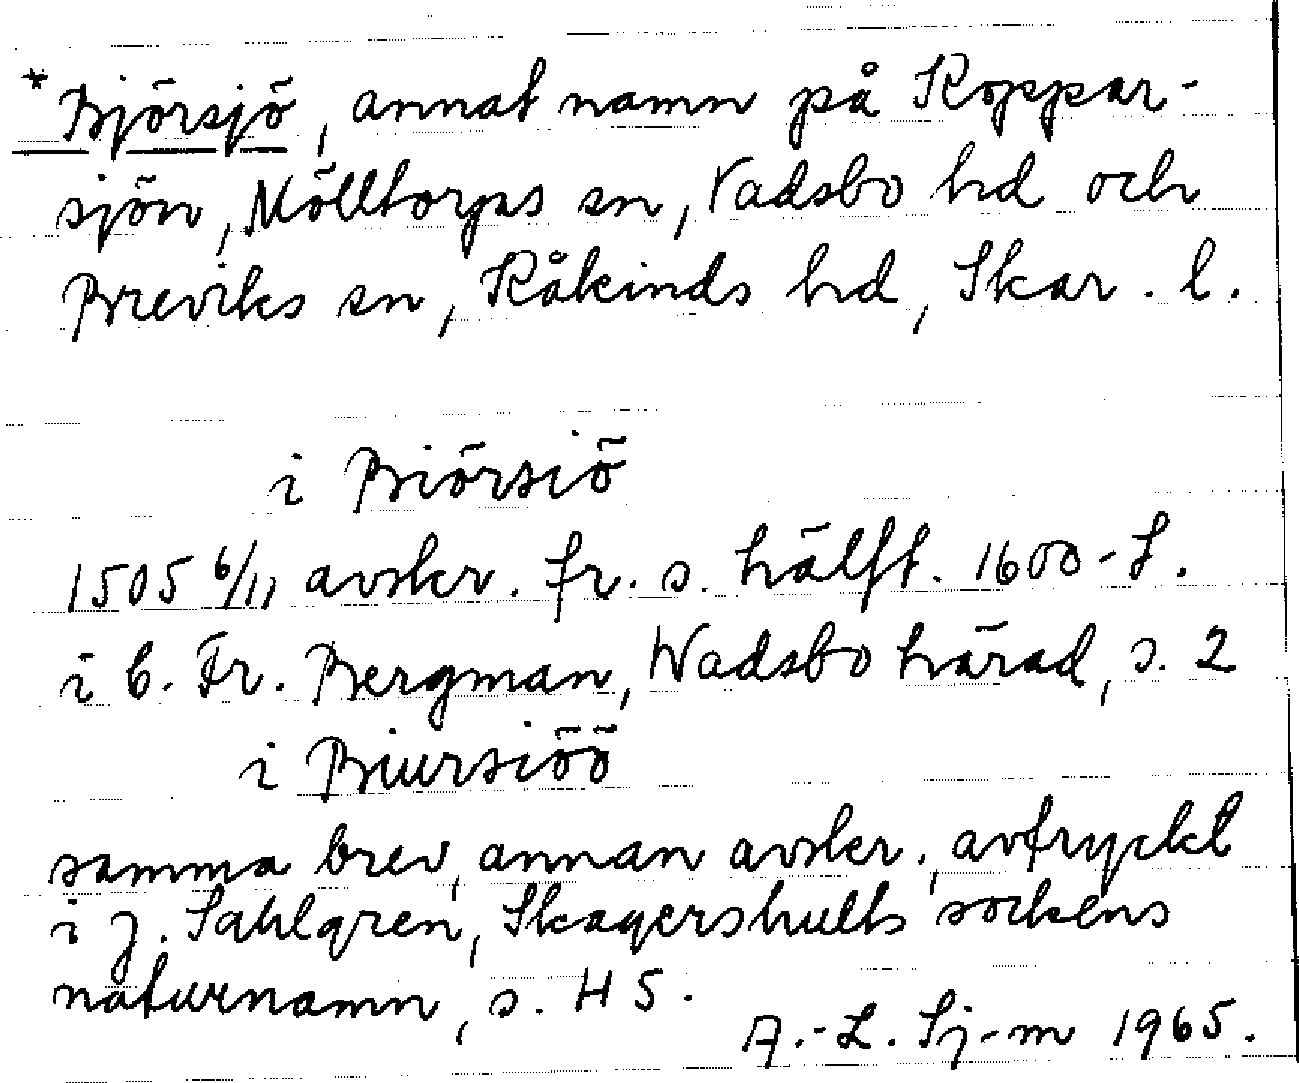 *Björsjö, annat namn på Koppar-
sjön, Mölltorps sn, Vadsbo hd och
Breviks sn, Kåkinds hd, Skar. l.
i Biörsiö
1505 6/11 avskr. fr. s. hälft. 1600-t.
i C. Fr. Bergman, Wadsbo härad, s. 2
i Biursiöö
samma brev, annan avskr., avtryckt
i J. Sahlgren, Skagershults sockens
naturnamn, s. 45.
A.-L. Sj-m 1965.